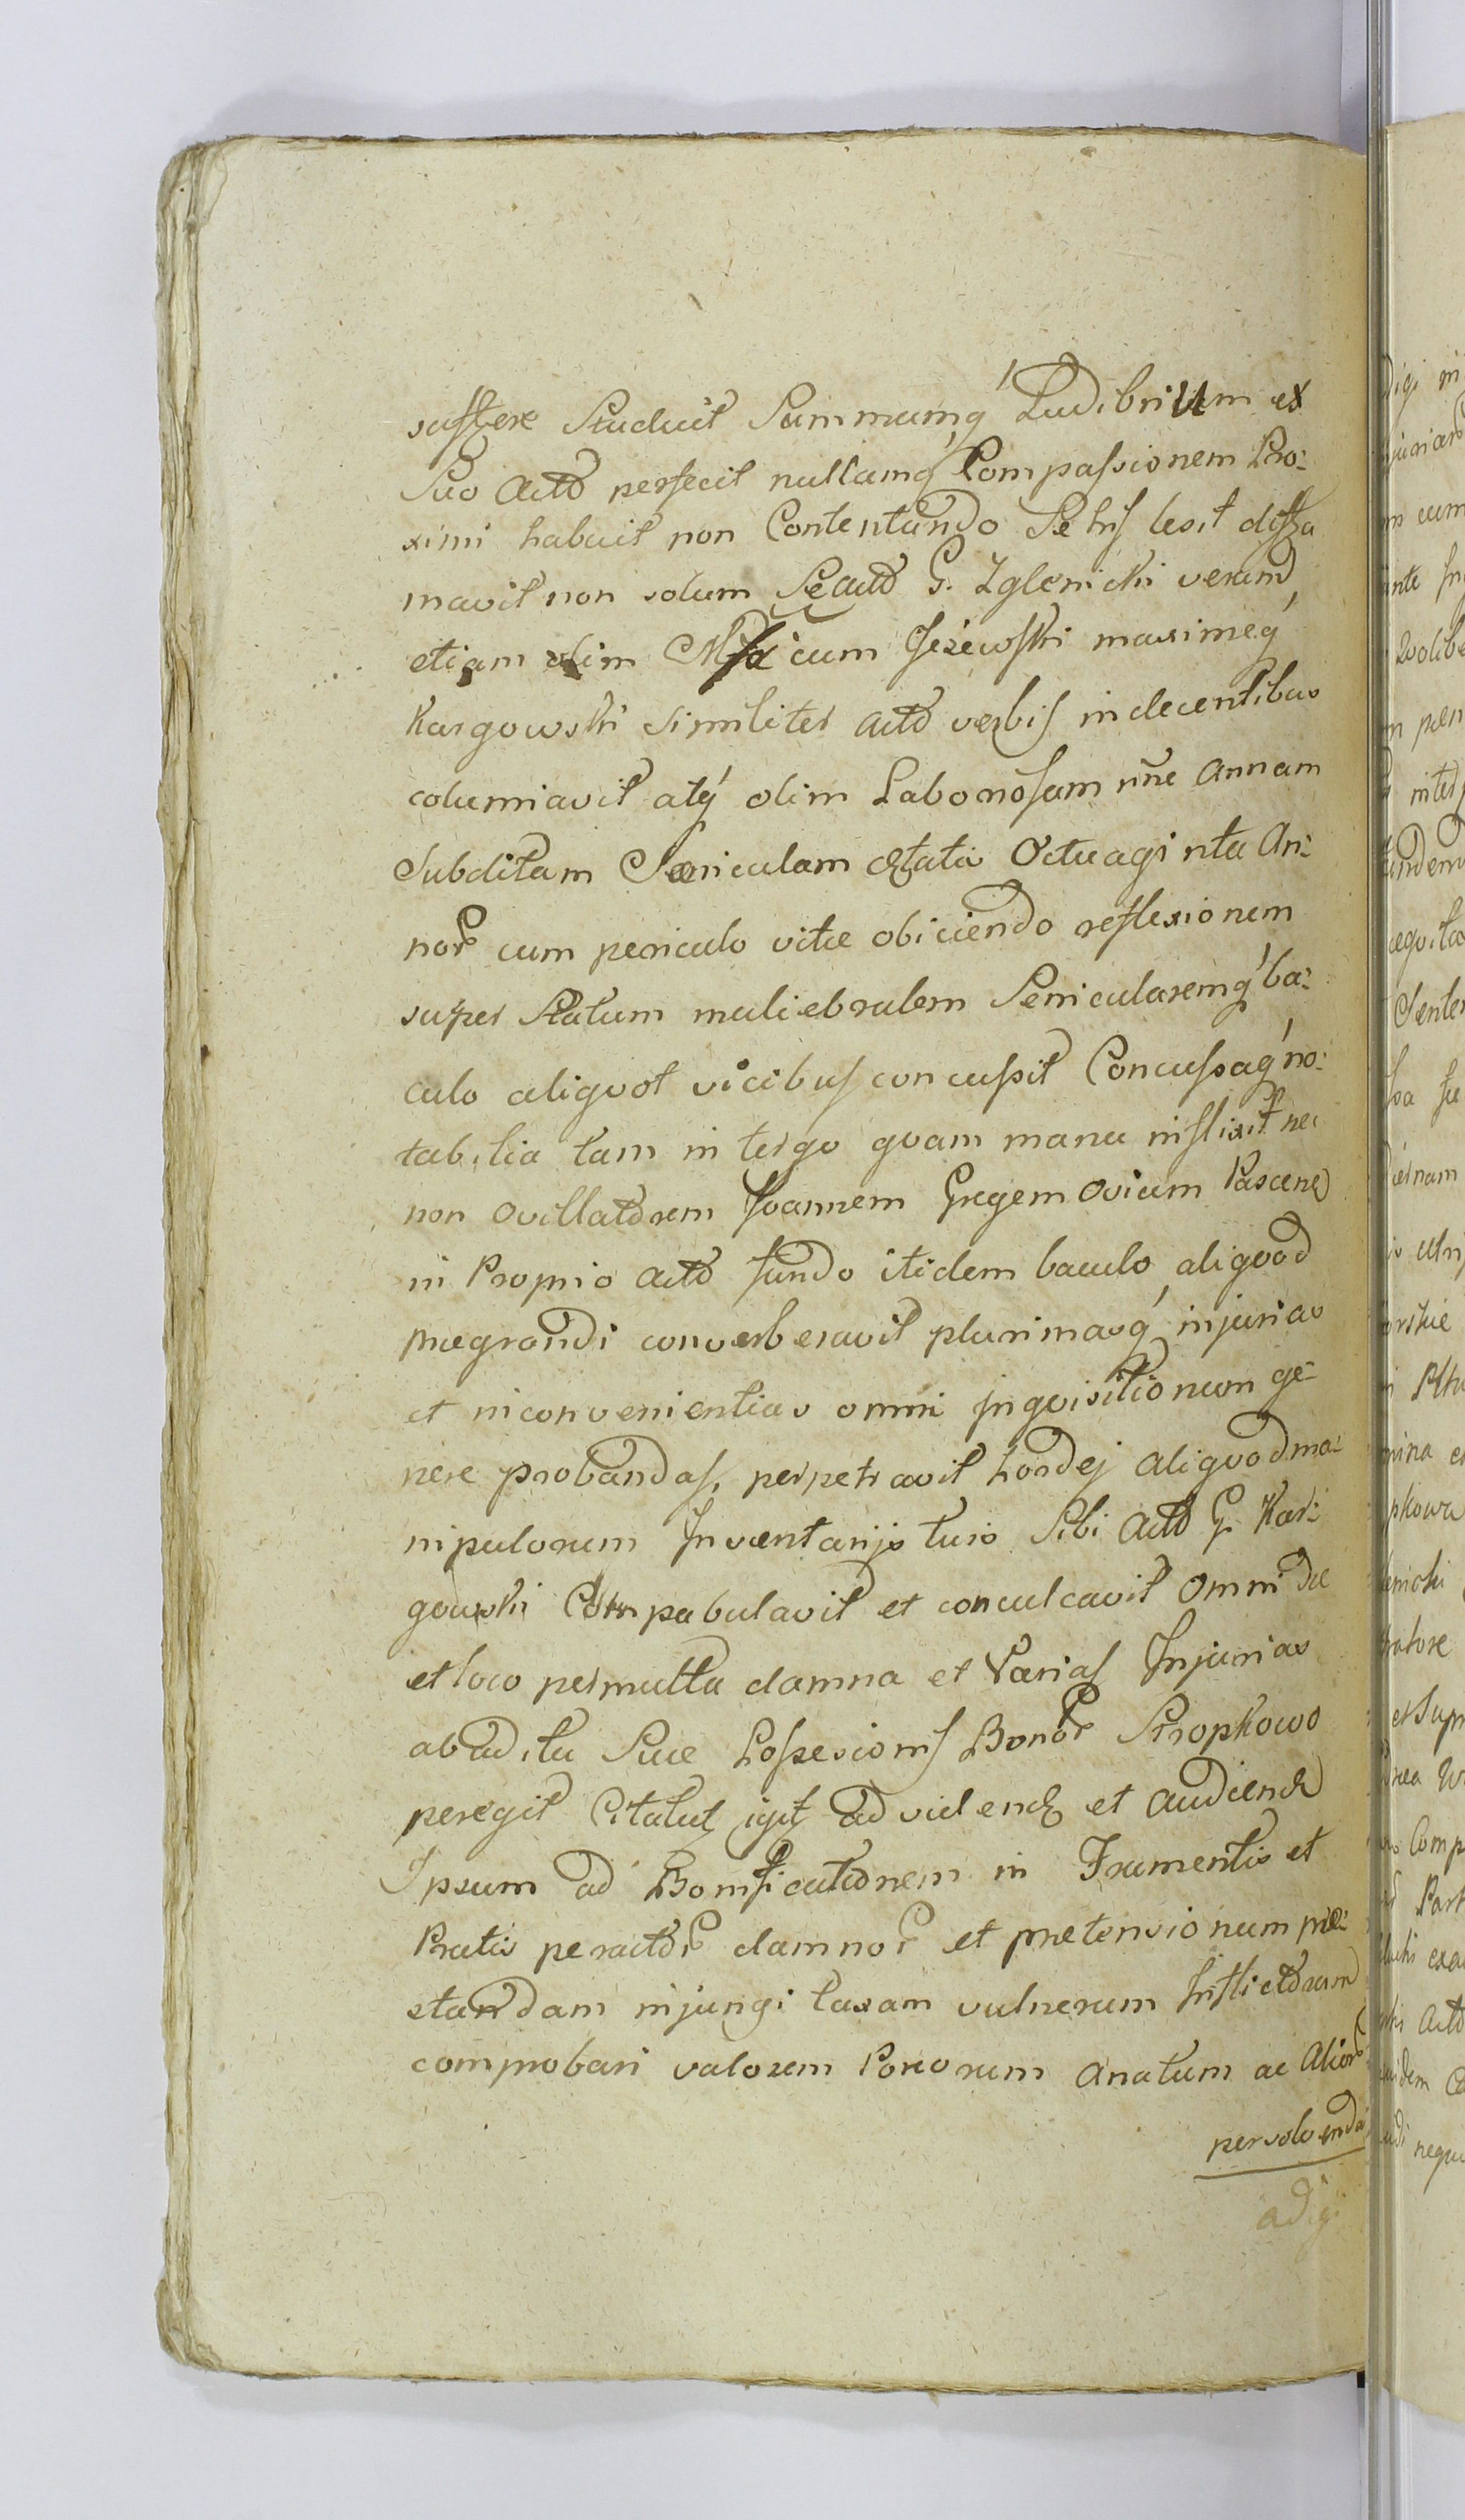 suffere Studuit Summamq́ Ludibrium ex
Suo Actō perfecit nullamq́ Compassionem Pro:
ximi habuit non Contentando Se his lesit diffa
mavit non solum Se Actō G. Zglenicki verum
etiam olim cum Jeżewski maximeq́
Kargowski Similiter Actō verbis indecentibus
columiavit atq́ olim Laboriosam nñe Annam
Subditam Seniculam ætatis Octuaginta An:
nor cum periculo vitæ obiiciendo reflexionem
super Statum muliebralem Senicularemq́ ba:
culo aliqvot vicibus concussit Concussaq́ no:
tabilia tam in tergo qvam manu inflixit nec
non Ovillatorem Joannem Gregem Ovium Pascend
in Proprio Actō fundo itidem baculo aliqvod
prægrandi converberavit plurimasq́ injurias
et inconvenientias omni Inqvisitionum ge:
nere probandas, perpetravit hordej aliqvod ma:
nipulorum Inventarijs suis Sibi Actō G. Kar:
gowski Compabulavit et conculcavit Omni die
et loco permulta damna et Varias Injurias
ab aditu Suæ Possesionis Bonor Stropkowo
peregit Citatur igitr ad videnд et Audiend
Ipsum ad Bonificationem in Frumentis et
Pratis peractor damnor et prætensionum præ:
standam injungi taxam vulnerum Inflictorum
comprobari valorem Porcorum Anatum ac Alior
persolvenda
adigi